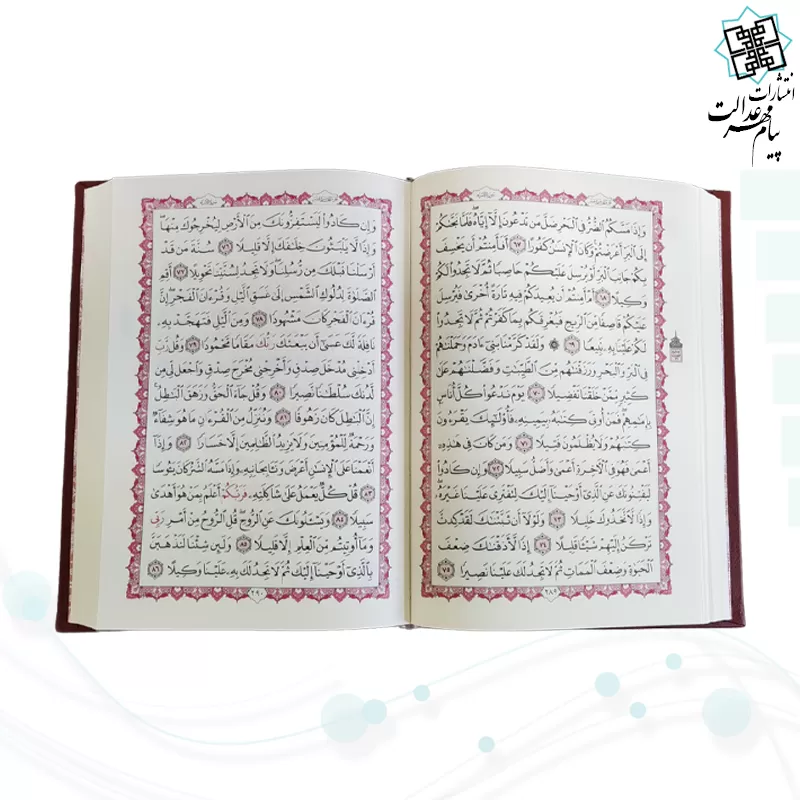 انتشارات
پیام مهر عدالت
وَإِذَا مَسَّكُمُ الضُّرُّ فِي الْبَحْرِ ضَلَّ مَن تَدْعُونَ إِلَّا إِيَّاهُ فَلَمَّا نَجَّاكُمْ
إِلَى الْبَرِّ أَعْرَضْتُمْ وَكَانَ الْإِنسَانُ كَفُورًا ٦٧ أَفَأَمِنتُمْ أَن يَخْسِفَ
بِكُمْ جَانِبَ الْبَرِّ أَوْ يُرْسِلَ عَلَيْكُمْ حَاصِبًا ثُمَّ لَا تَجِدُوا لَكُمْ
وَكِيلًا ٦٨ أَمْ أَمِنتُمْ أَن يُعِيدَكُمْ فِيهِ تَارَةً أُخْرَىٰ فَيُرْسِلَ
عَلَيْكُمْ قَاصِفًا مِنَ الرِّيحِ فَيُغْرِقَكُم بِمَا كَفَرْتُمْ ثُمَّ لَا تَجِدُوا
لَكُمْ عَلَيْنَا بِهِ تَبِيعًا ٦٩ وَلَقَدْ كَرَّمْنَا بَنِي آدَمَ وَحَمَلْنَاهُمْ
فِي الْبَرِّ وَالْبَحْرِ وَرَزَقْنَاهُم مِنَ الطَّيِّبَاتِ وَفَضَّلْنَاهُمْ عَلَىٰ
كَثِيرٍ مِمَّنْ خَلَقْنَا تَفْضِيلًا ٧٠ يَوْمَ نَدْعُوا كُلَّ أُنَاسٍ
بِإِمَامِهِمْ فَمَنْ أُوتِيَ كِتَابَهُ بِيَمِينِهِ فَأُولَٰئِكَ يَقْرَءُونَ
كِتَابَهُمْ وَلَا يُظْلَمُونَ فَتِيلًا ٧١ وَمَن كَانَ فِي هَٰذِهِ
أَعْمَىٰ فَهُوَ فِي الْآخِرَةِ أَعْمَىٰ وَأَضَلُّ سَبِيلًا ٧٢ وَإِن كَادُوا
لَيَفْتِنُونَكَ عَنِ الَّذِي أَوْحَيْنَا إِلَيْكَ لِتَفْتَرِيَ عَلَيْنَا غَيْرَهُ
وَإِذًا لَاتَّخَذُوكَ خَلِيلًا ٧٣ وَلَوْلَا أَن ثَبَّتْنَاكَ لَقَدْ كِدتَّ
تَرْكَنُ إِلَيْهِمْ شَيْئًا قَلِيلًا ٧٤ إِذًا لَأَذَقْنَاكَ ضِعْفَ
الْحَيَاةِ وَضِعْفَ الْمَمَاتِ ثُمَّ لَا تَجِدُ لَكَ عَلَيْنَا نَصِيرًا ٧٥
٢٨٩
وَإِن كَادُوا لَيَسْتَفِزُّونَكَ مِنَ الْأَرْضِ لِيُخْرِجُوكَ مِنْهَا
وَإِذًا لَا يَلْبَثُونَ خِلَافَكَ إِلَّا قَلِيلًا ٧٦ سُنَّةَ مَن قَدْ
أَرْسَلْنَا قَبْلَكَ مِن رُسُلِنَا وَلَا تَجِدُ لِسُنَّتِنَا تَحْوِيلًا ٧٧ أَقِمِ
الصَّلَاةَ لِدُلُوكِ الشَّمْسِ إِلَىٰ غَسَقِ اللَّيْلِ وَقُرْءَانَ الْفَجْرِ إِنَّ
قُرْءَانَ الْفَجْرِ كَانَ مَشْهُودًا ٧٨ وَمِنَ اللَّيْلِ فَتَهَجَّدْ بِهِ
نَافِلَةً لَكَ عَسَىٰ أَن يَبْعَثَكَ رَبُّكَ مَقَامًا مَحْمُودًا ٧٩ وَقُل رَبِّ
أَدْخِلْنِي مُدْخَلَ صِدْقٍ وَأَخْرِجْنِي مُخْرَجَ صِدْقٍ وَاجْعَل لِي مِن
لَدُنكَ سُلْطَانًا نَصِيرًا ٨٠ وَقُلْ جَاءَ الْحَقُّ وَزَهَقَ الْبَاطِلُ
إِنَّ الْبَاطِلَ كَانَ زَهُوقًا ٨١ وَنُنَزِّلُ مِنَ الْقُرْءَانِ مَا هُوَ شِفَاءٌ
وَرَحْمَةٌ لِلْمُؤْمِنِينَ وَلَا يَزِيدُ الظَّالِمِينَ إِلَّا خَسَارًا ٨٢ وَإِذَا
أَنْعَمْنَا عَلَى الْإِنسَانِ أَعْرَضَ وَنَـَٔا بِجَانِبِهِ وَإِذَا مَسَّهُ الشَّرُّ كَانَ يَـُٔوسًا
٨٣ قُلْ كُلٌّ يَعْمَلُ عَلَىٰ شَاكِلَتِهِ فَرَبُّكُمْ أَعْلَمُ بِمَنْ هُوَ أَهْدَىٰ
سَبِيلًا ٨٤ وَيَسْـَٔلُونَكَ عَنِ الرُّوحِ قُلِ الرُّوحُ مِنْ أَمْرِ رَبِّي
وَمَا أُوتِيتُم مِنَ الْعِلْمِ إِلَّا قَلِيلًا ٨٥ وَلَئِن شِئْنَا لَنَذْهَبَنَّ
بِالَّذِي أَوْحَيْنَا إِلَيْكَ ثُمَّ لَا تَجِدُ لَكَ بِهِ عَلَيْنَا وَكِيلًا ٨٦
٢٩٠